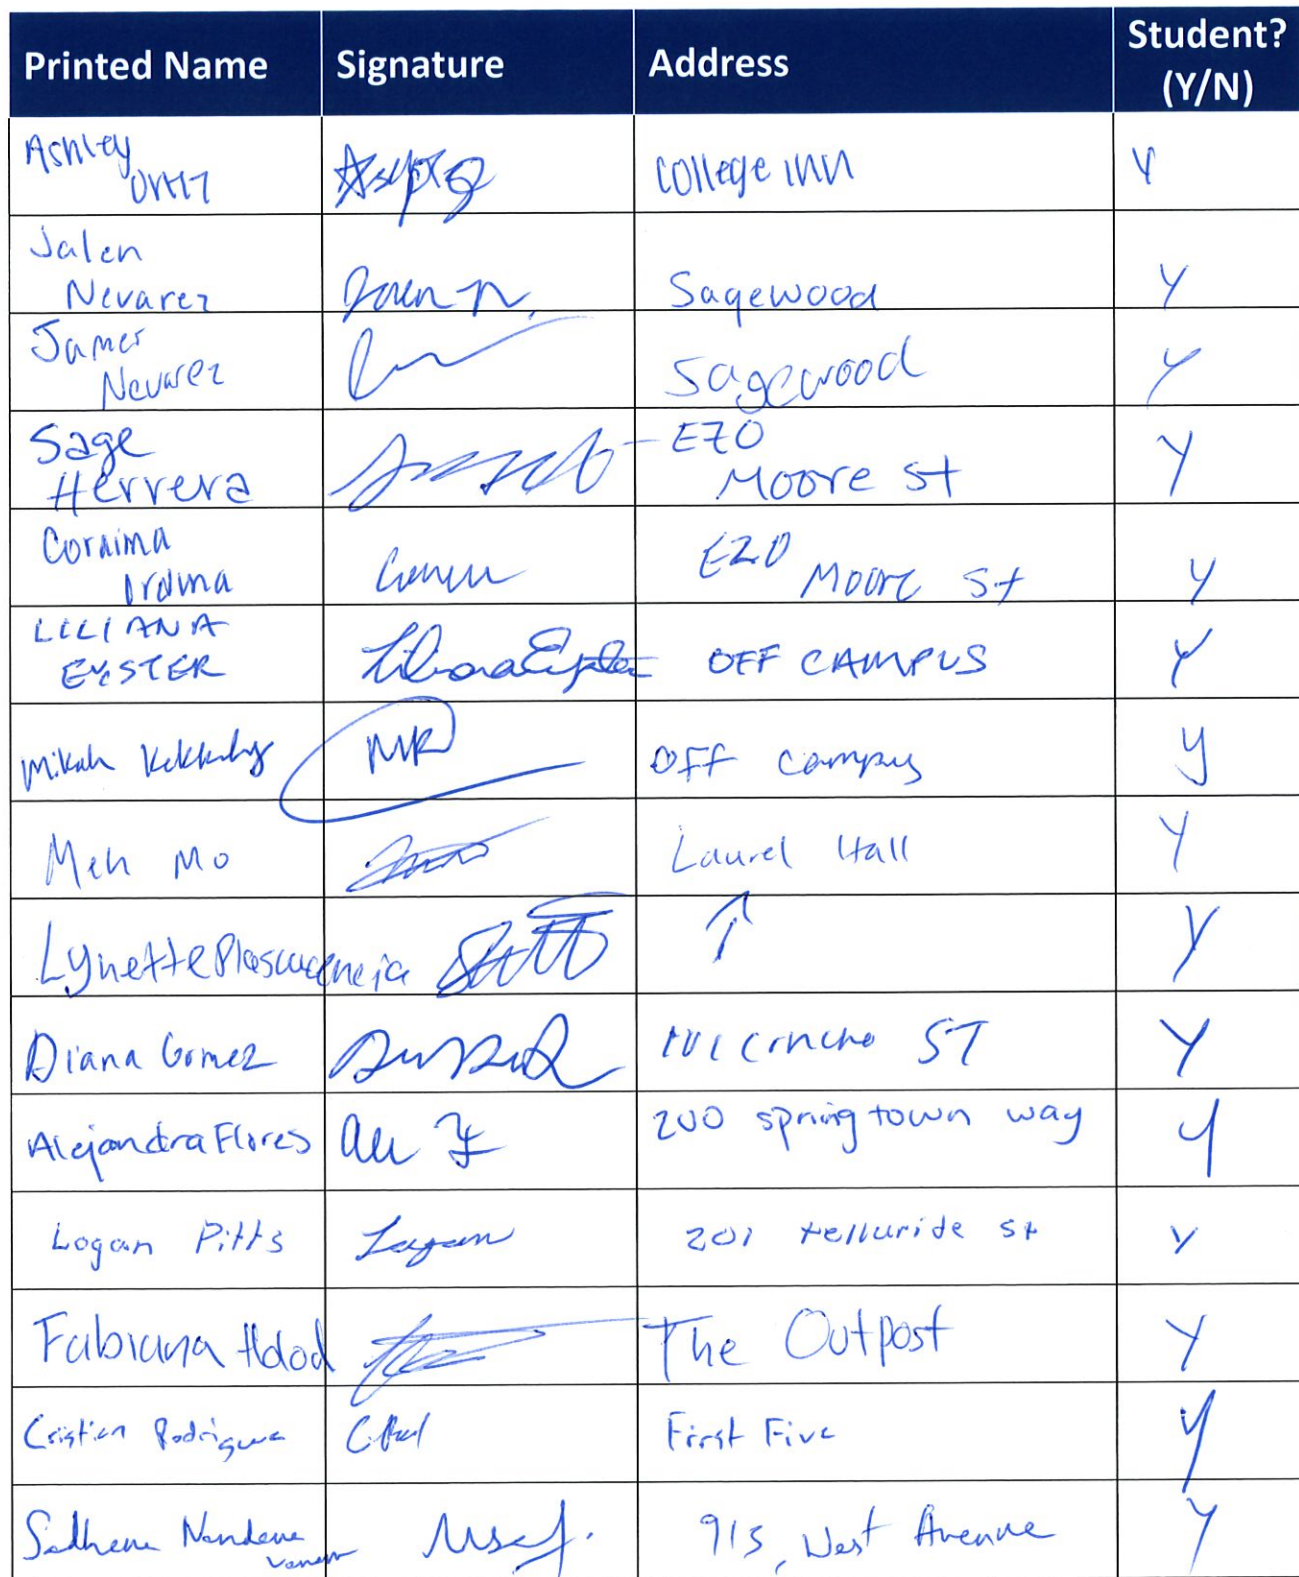 Printed Name Signature Address Student? (Y/N)
Ashley Ortiz College Inn Y
Jalen Nevarez Jalen N. Sagewood Y
James Nevarez Sagewood Y
Sage Herrera E70 Moore St Y
Coraima E20 Moore St Y
LILIANA EYSTER Liliana Eyster OFF CAMPUS Y
Mikah MR Off campus Y
Meh Mo Laurel Hall Y
Lynette ↑ Y
Diana Gomez ST Y
Alejandra Flores 200 springtown way Y
Logan Pitts Logan 201 telluride st Y
Fabiana The Outpost Y
Cristian First Five Y
913, West Avenue Y